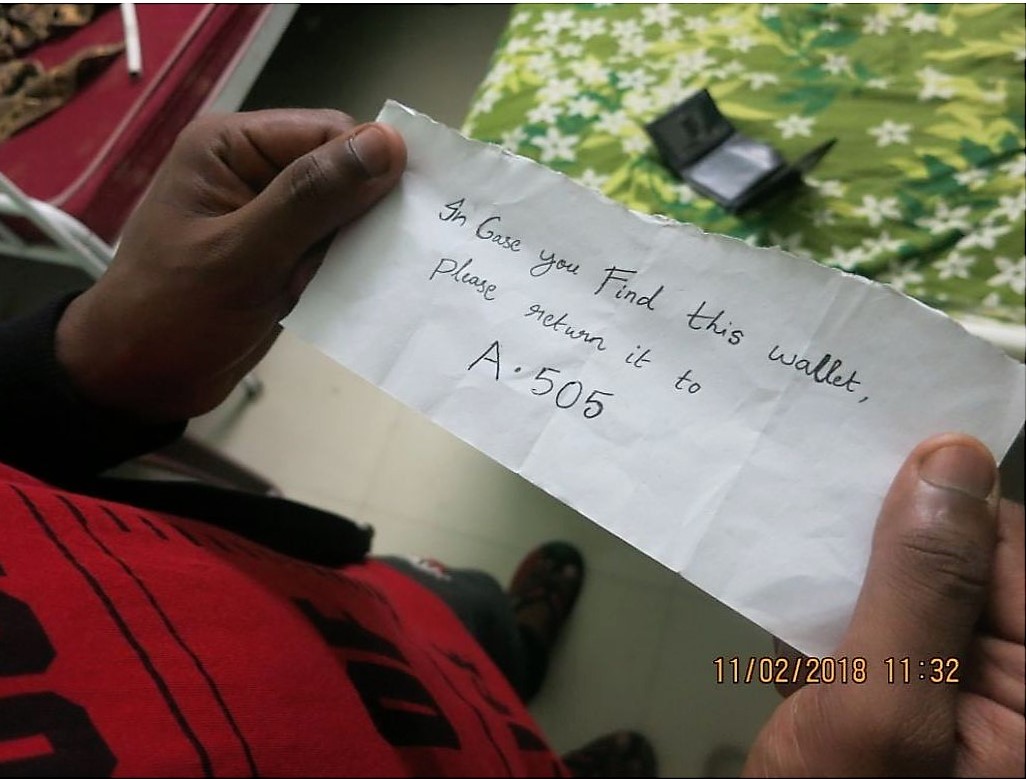 In Case you Find this wallet,
please return it to
A. 505
11/02/2018 11:32